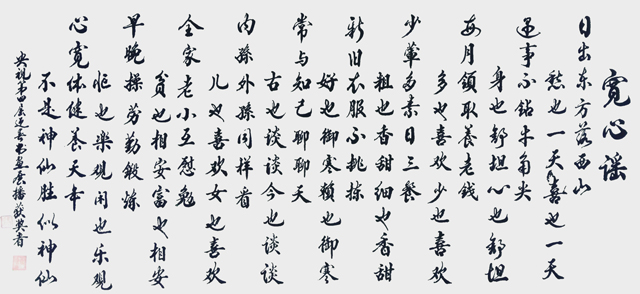 宽心谣
日出东方落西山
愁也一天喜也一天
遇事不钻牛角尖
身也舒坦心也舒坦
每月領取养老钱
多也喜欢少也喜欢
少荤多素日三餐
粗也香甜细也香甜
新旧衣服不挑拣
好也御寒赖也御寒
常与知己聊聊天
古也谈谈今也谈谈
内孫外孫同样看
儿也喜欢女也喜欢
全家老小互慰勉
贫也相安富也相安
早晚操劳勤锻炼
忙也乐观闲也乐观
心宽体健养天年
不是神仙胜似神仙
央视第四套迎春展播获奖者